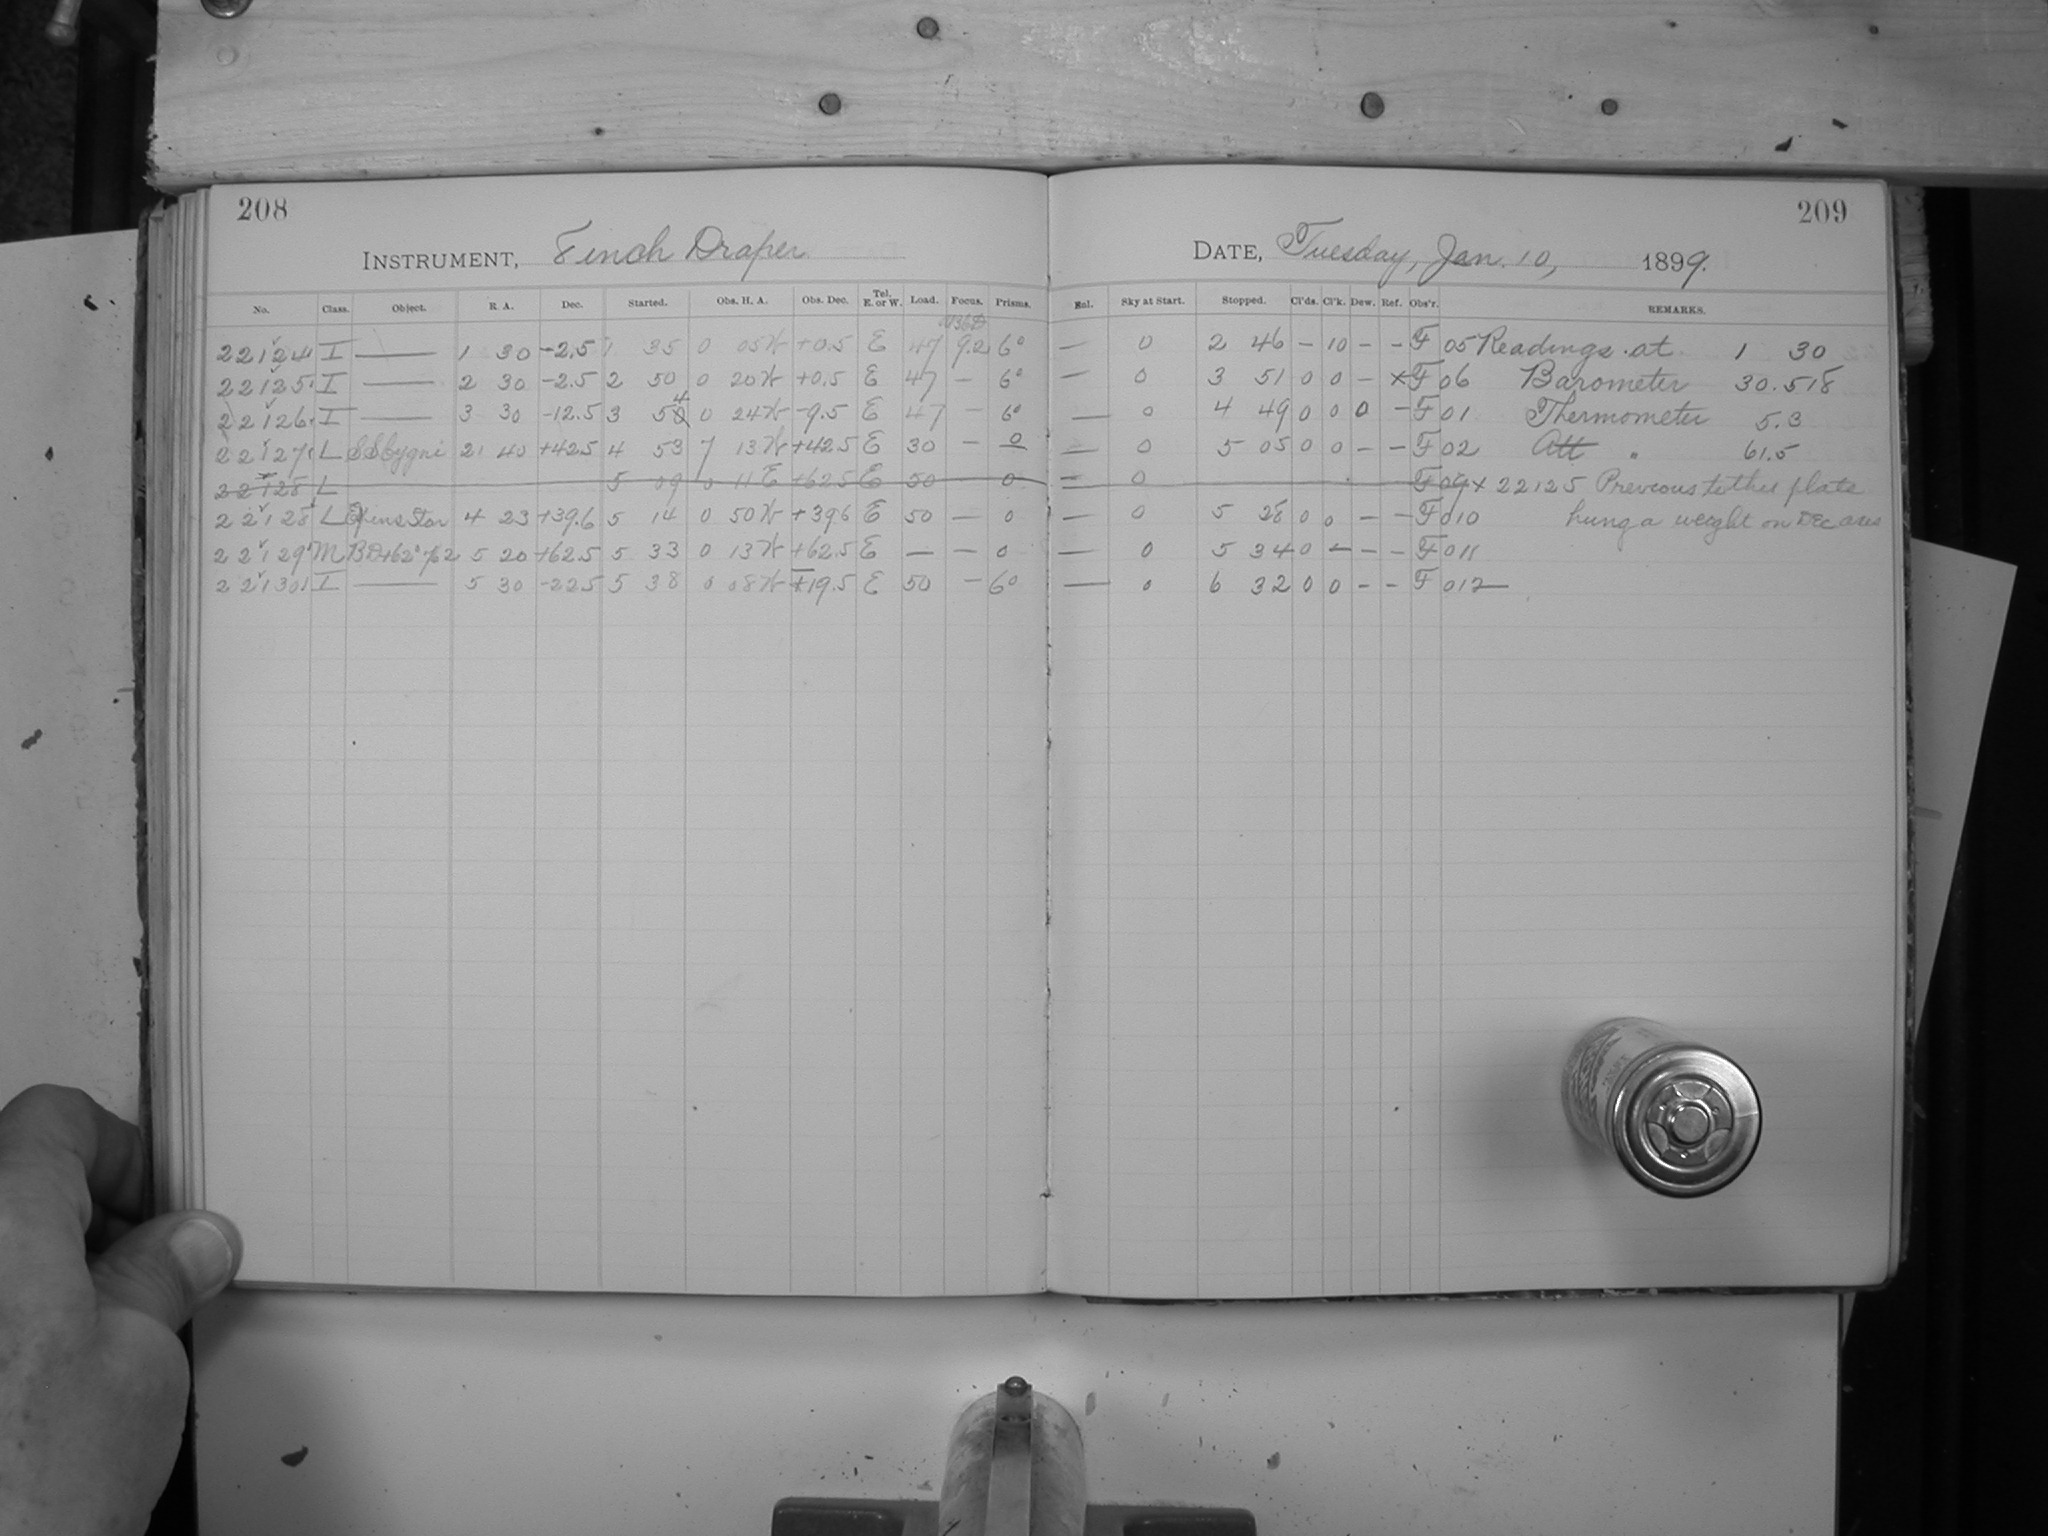 208
209
INSTRUMENT, 8 inch Draper
DATE, Tuesday, Jan. 10, 1899.
No. Class. Object. R. A. Dec. Started. Obs. H. A. Obs. Dec. Tel. E. or W. Load. Focus. Prisms. Sky at Start. Stopped. Cl'ds. Cl'k. Dew. Ref. Obs'r. REMARKS.
22124 I — 1 30 -2.5 1 35 0 05W +0.5 E 47 9.2 6° — 0 2 46 - 10 - - F 05 Readings at 1 30
22125 I — 2 30 -2.5 2 50 0 20W +0.5 E 47 - 6° — 0 3 51 0 0 - × F 06 Barometer 30.518
22126 I — 3 30 -12.5 3 54 0 24W -9.5 E 47 - 6° — 0 4 49 0 0 0 - F 01 Thermometer 5.3
22127 L SS Cygni 21 40 +42.5 4 53 7 13W +42.5 E 30 - 0 — 0 5 05 0 0 - - F 02 Att " 61.5
22128 L 5 09 0 11E +62.5 E 50 — 0 — 0 F 09 × 22125 Previous to this plate
22128 L 4 23 +39.6 5 14 0 50W +39.6 E 50 - 0 — 0 5 28 0 0 - - F 010 hung a weight on Dec axis
22129 M BD+62°762 5 20 +62.5 5 33 0 13W +62.5 E — - 0 — 0 5 34 0 - - - F 011
22130 I — 5 30 -22.5 5 38 0 08W -19.5 E 50 - 6° — 0 6 32 0 0 - - F 012